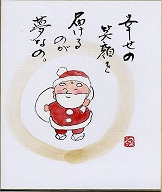 幸せの
笑顔を
届ける
のが
夢なの。